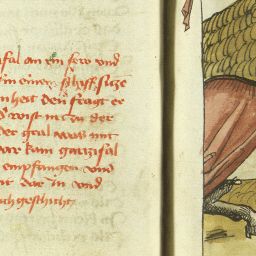 ifal an ein sew vnd
in einem schiff sitze
nheit den fragt er
wist in zu der
der gral was mit
war kam gartzifal
empfangen vnd
dar in vnd
ch geschicht